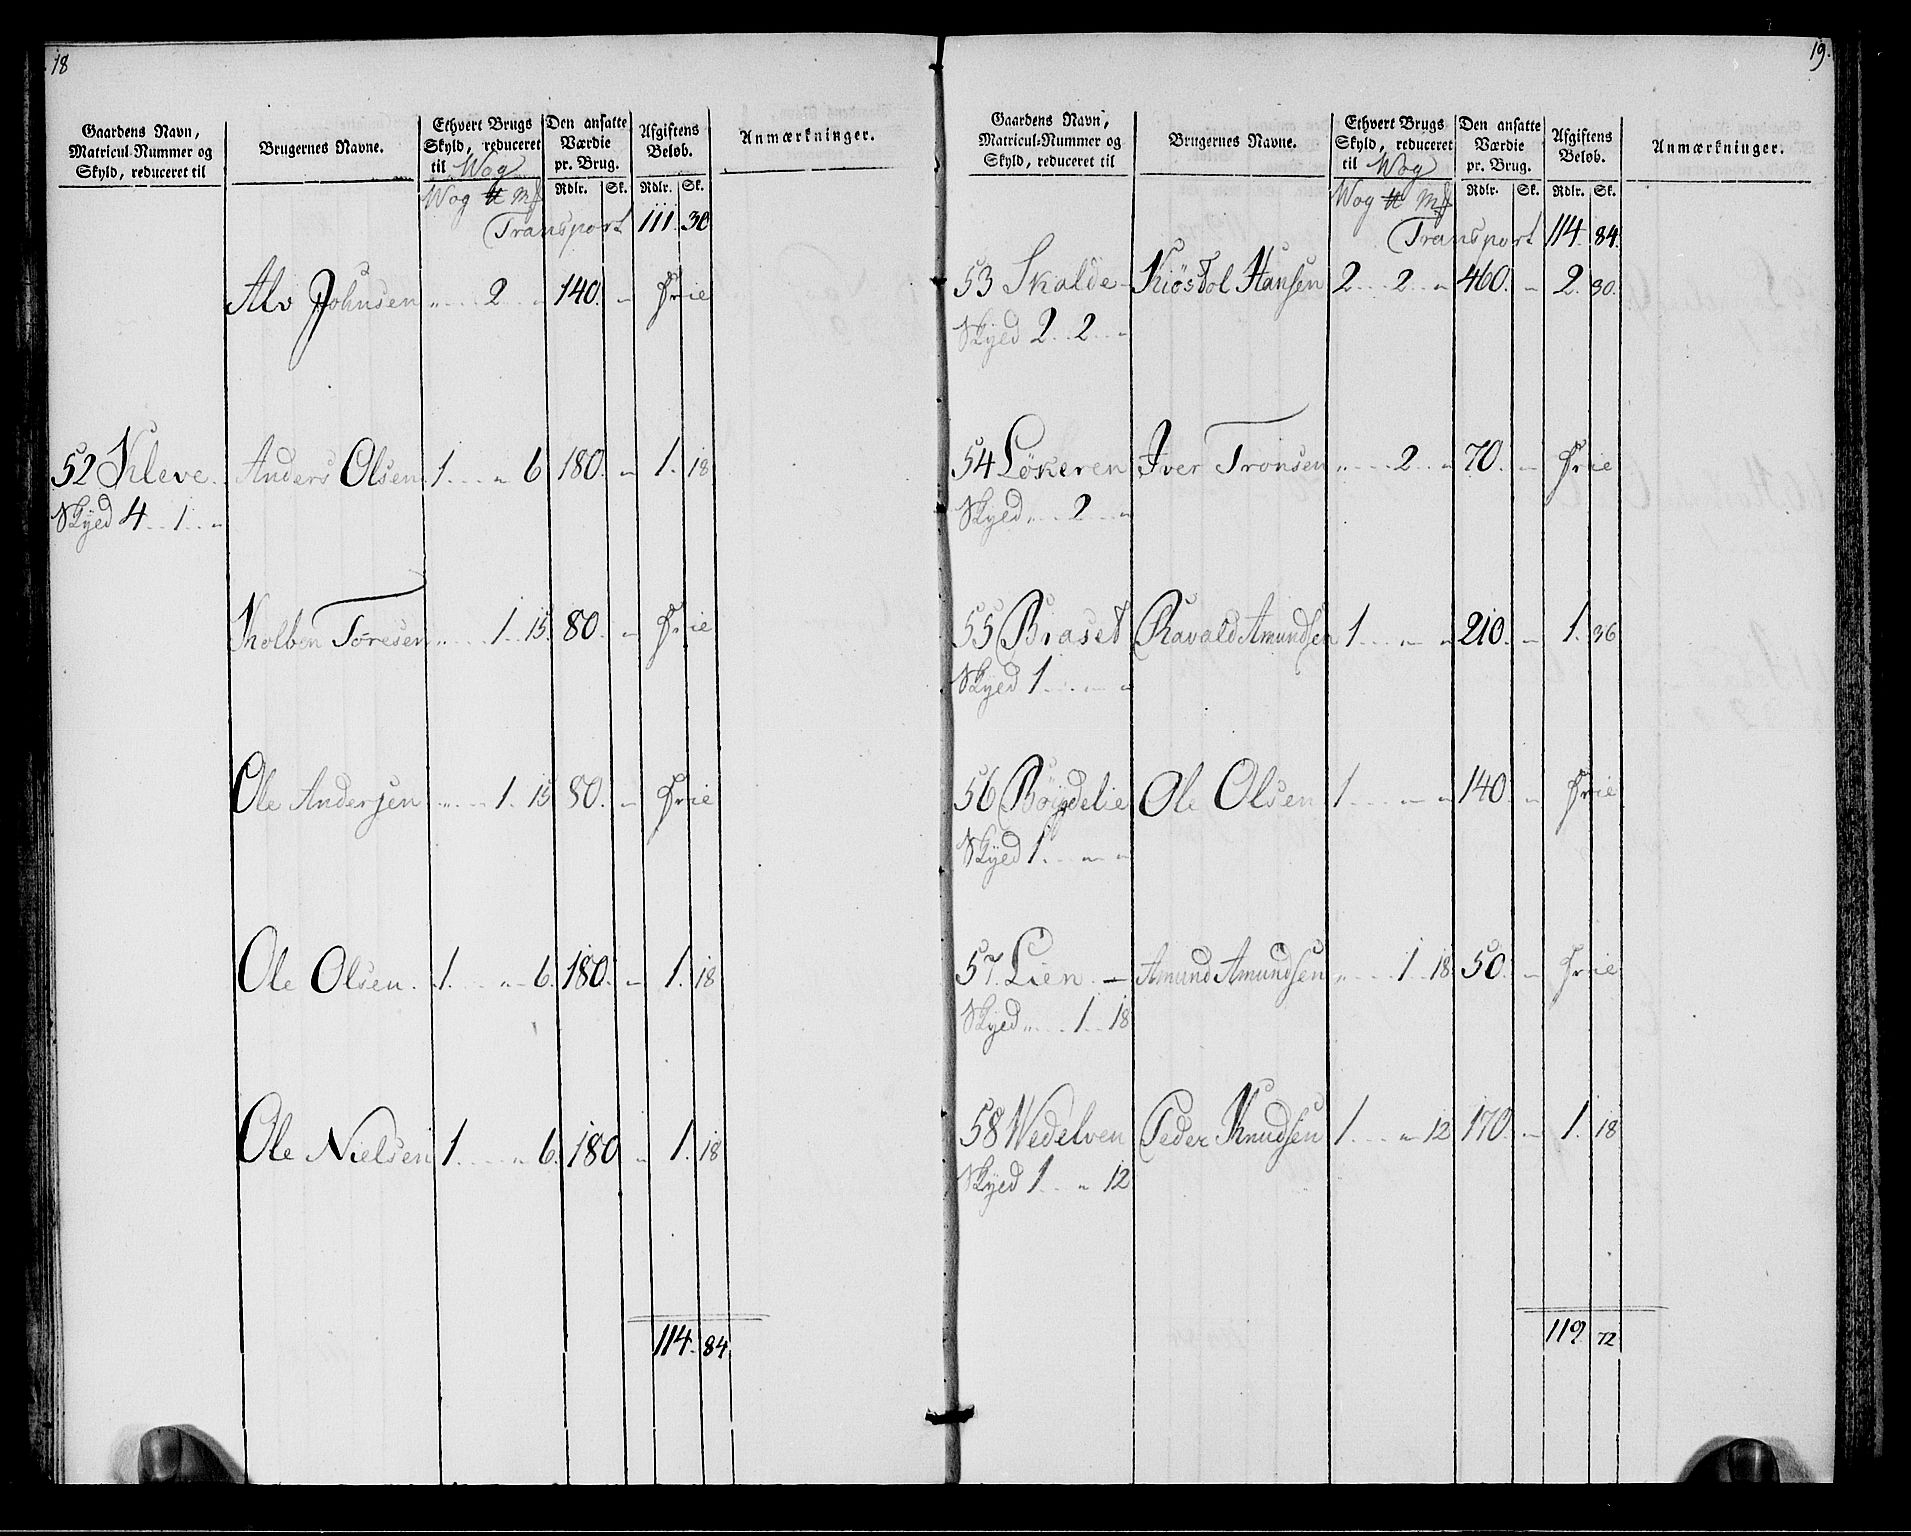 18
Gaardens Navn, Matricul-Nummer og Skyld, reduceret til
Brugernes Navne.
Ethvert Brugs Skyld, reduceret til Wog
Den ansatte Værdie pr. Brug.
Afgiftens Beløb.
Anmærkninger.
Rdlr. Sk. Rdlr. Sk.
Wog ℔ Mk
Transport 111. 30
Alv Johnsen " 2 " 140. " Frie
52 Kleve. Anders Olsen 1 " 6 180. " 1. 18
Skyld 4 1 "
Kolben Toresen " 1 15 80. " Frie
Ole Andersen " 1 15 80. " Frie
Ole Olsen. 1 " 6. 180. " 1. 18
Ole Nielsen 1 " 6. 180 " 1. 18
114. 84
19.
Gaardens Navn, Matricul-Nummer og Skyld, reduceret til
Brugernes Navne.
Ethvert Brugs Skyld, reduceret til Wog
Den ansatte Værdie pr. Brug.
Afgiftens Beløb.
Anmærkninger.
Rdlr. Sk. Rdlr. Sk.
Wog ℔ Mk
Transport 114. 84.
53 Skalde Kiöstol Hansen 2 2 " 460. " 2. 30.
Skyld 2 2 "
54 Løkeren Iver Tronsen " 2 " 70. " Frie
Skyld " 2 "
55 Braset Ravald Amundsen 1 " " 210. " 1. 36
Skyld 1 " "
56 Böigdelie Ole Olsen 1 " " 140. " Frie
Skyld 1 " "
57. Lien. Amund Amundsen " 1 18 50. " Frie
Skyld " 1 18
58 Wedelven Peder Knudsen 1 " 12 170. " 1. 18
Skyld 1 " 12
119. 72